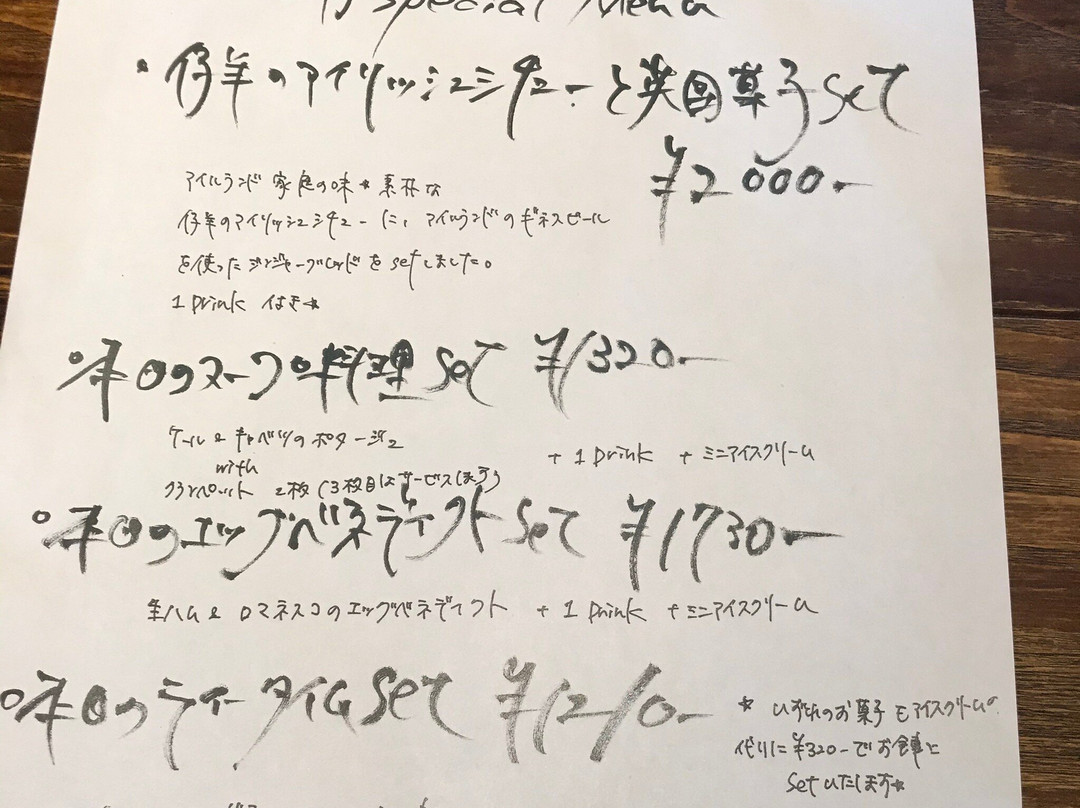 Special Menu
・仔羊のアイリッシュシチューと英国菓子set
¥2000.-
アイルランド家庭の味★素朴な
仔羊のアイリッシュシチューに、アイルランドのギネスビール
を使ったジンジャーブレッドをsetしました。
1 Drink 付き★
○本日のスープ料理set ¥1320.-
ケール&キャベツのポタージュ
with
クランペット 2枚(3枚目はサービスします)
+ 1 Drink + ミニアイスクリーム
○本日のエッグベネディクトset ¥1730.-
生ハム&ロマネスコのエッグベネディクト + 1 Drink + ミニアイスクリーム
○本日のティータイムset ¥1210.-
★ いずれのお菓子もアイスクリームの
代りに¥320-でお食事と
setいたします★